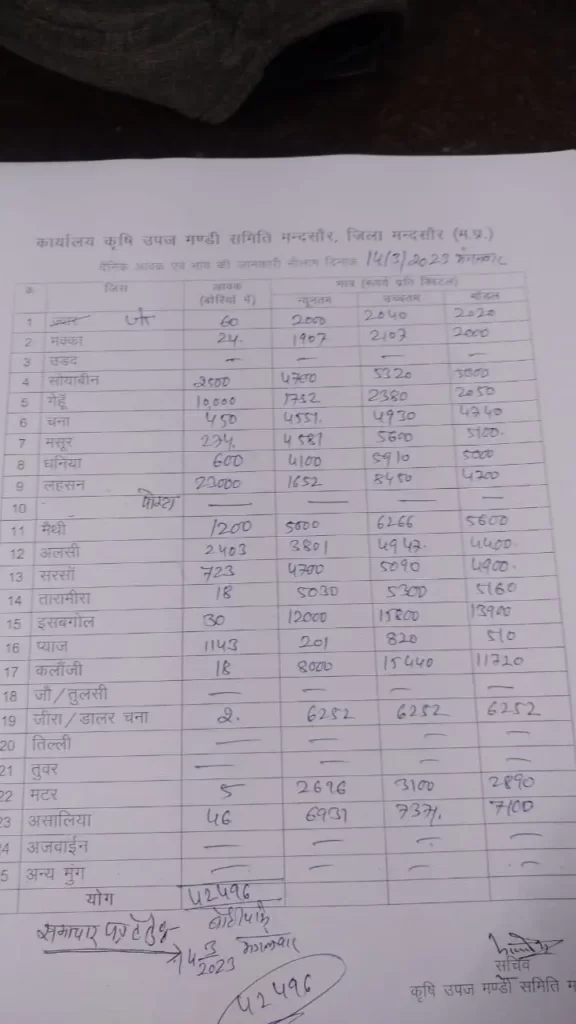 कार्यालय कृषि उपज मण्डी समिति मन्दसौर, जिला मन्दसौर (म.प्र.)
दैनिक आवक एवं भाव की जानकारी नीलाम दिनांक 14/3/2023 मंगलवार
क्र जिंस आवक (बोरियों में) भाव (रूपये प्रति क्विंटल)
न्यूनतम उच्चतम मॉडल
1 ज्वार जौ 60 2000 2040 2020
2 मक्का 24. 1907 2107 2000
3 उडद — — — —
4 सोयाबीन 2500 4700 5320 5000
5 गेहूँ 10,000 1752 2380 2050
6 चना 450 4551. 4930 4740
7 मसूर 274. 4581 5600 5100.
8 धनिया 600 4100 5910 5000
9 लहसन 23000 1652 8450 4700
10 पोस्ता — — — —
11 मैथी 1200 5000 6266 5600
12 अलसी 2403 3801 4947. 4400.
13 सरसों 723 4700 5090 4900.
14 तारामीरा 18 5030 5300 5160
15 इसबगोल 30 12000 15800 13900
16 प्याज 1143 201 820 510
17 कलौंजी 18 8000 15440 11720
18 जौ/तुलसी — — — —
19 जीरा/डालर चना 2. 6252 6252 6252
20 तिल्ली — — — —
21 तुवर — — — —
22 मटर 5 2696 3100 2890
23 असालिया 46 6931 7371. 7100
4 अजवाईन — — — —
5 अन्य मुंग — — — —
योग 42496
समाचार पत्र हेतु
14 3/2023 मंगलवार
42496
सचिव
कृषि उपज मण्डी समिति म